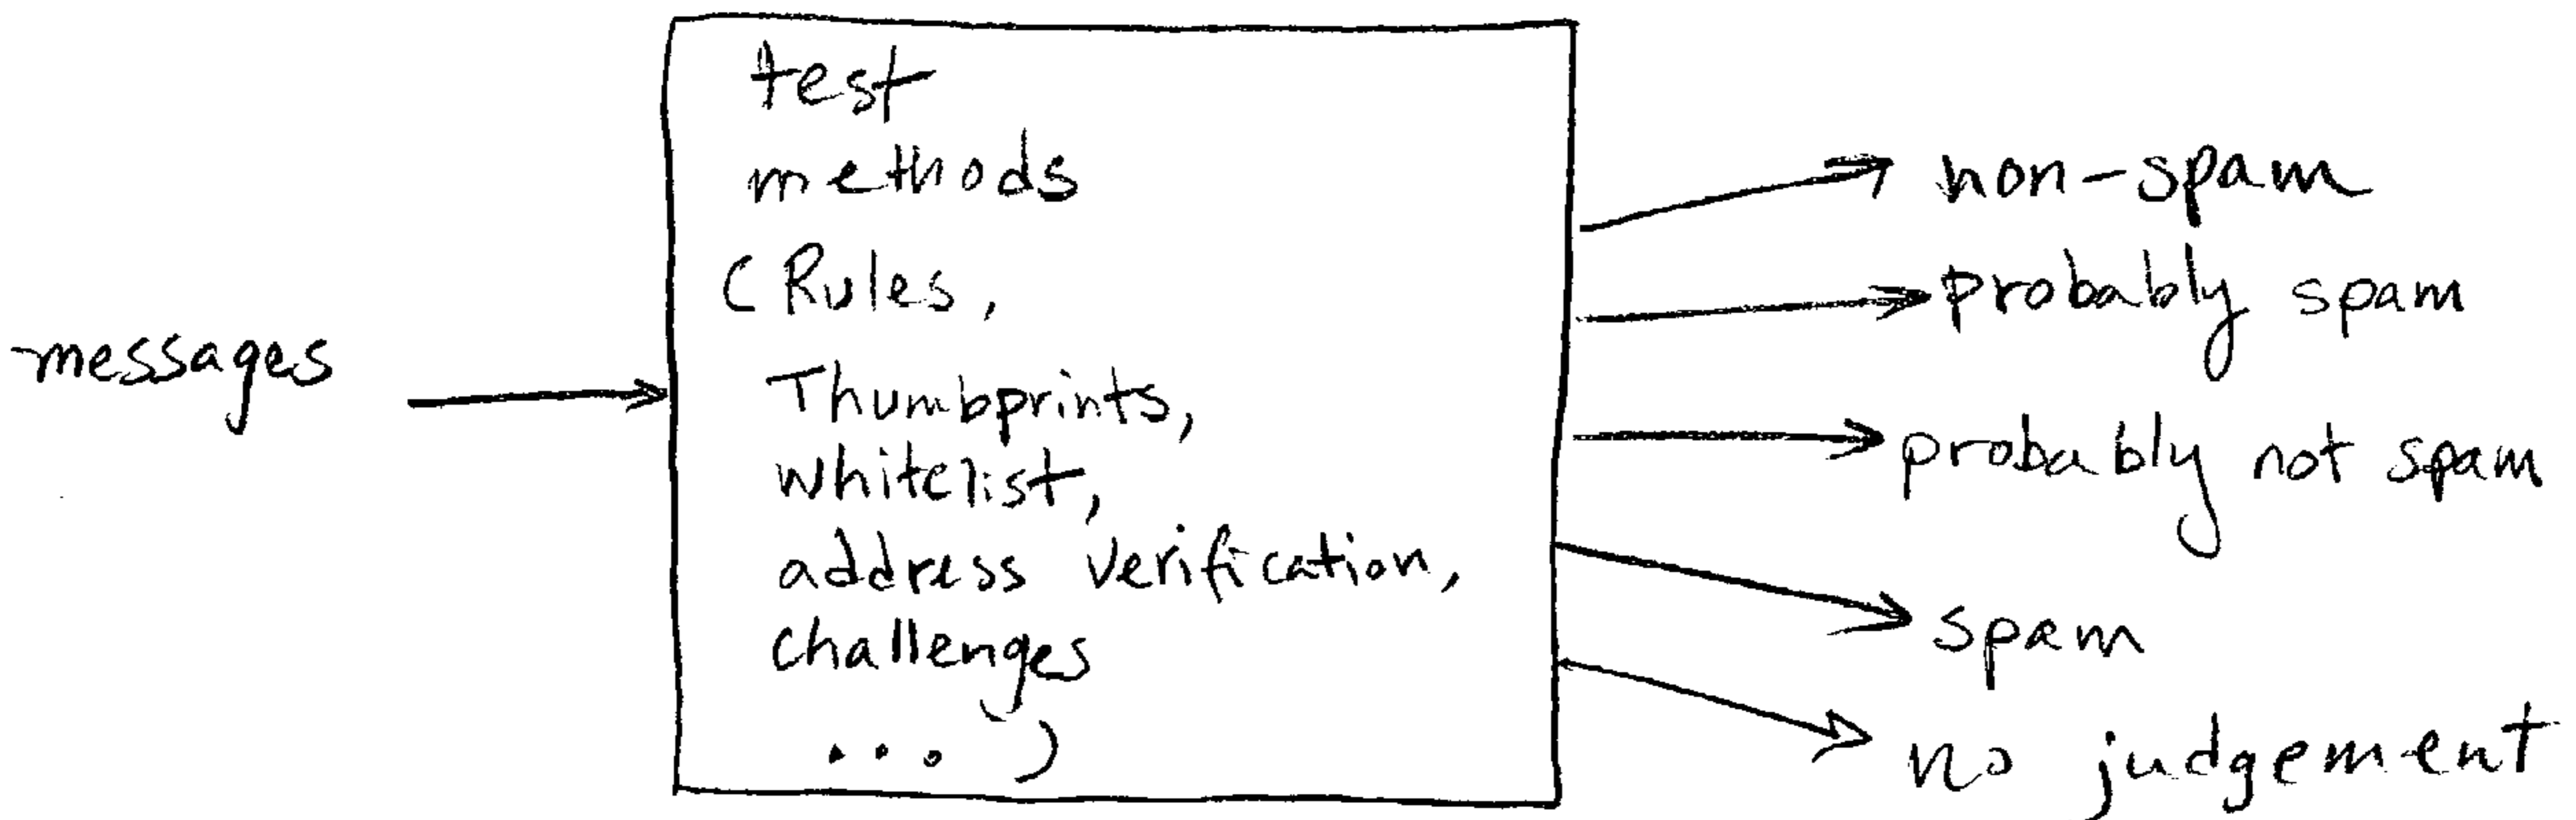 messages
test
methods
( Rules,
Thumbprints,
whitelist,
address verification,
challenges
... )
non-spam
probably spam
probably not spam
spam
no judgement